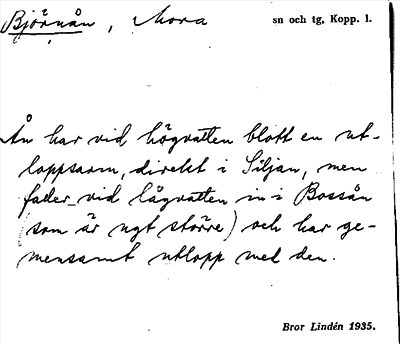 Björnån, Mora sn och tg, Kopp. l.
Ån har vid högvatten blott en ut-
loppsarm, direkt i Siljan, men
faller vid lågvatten in i Bossån
(som är ngt större) och har ge-
mensamt utlopp med den.
Bror Lindén 1935.